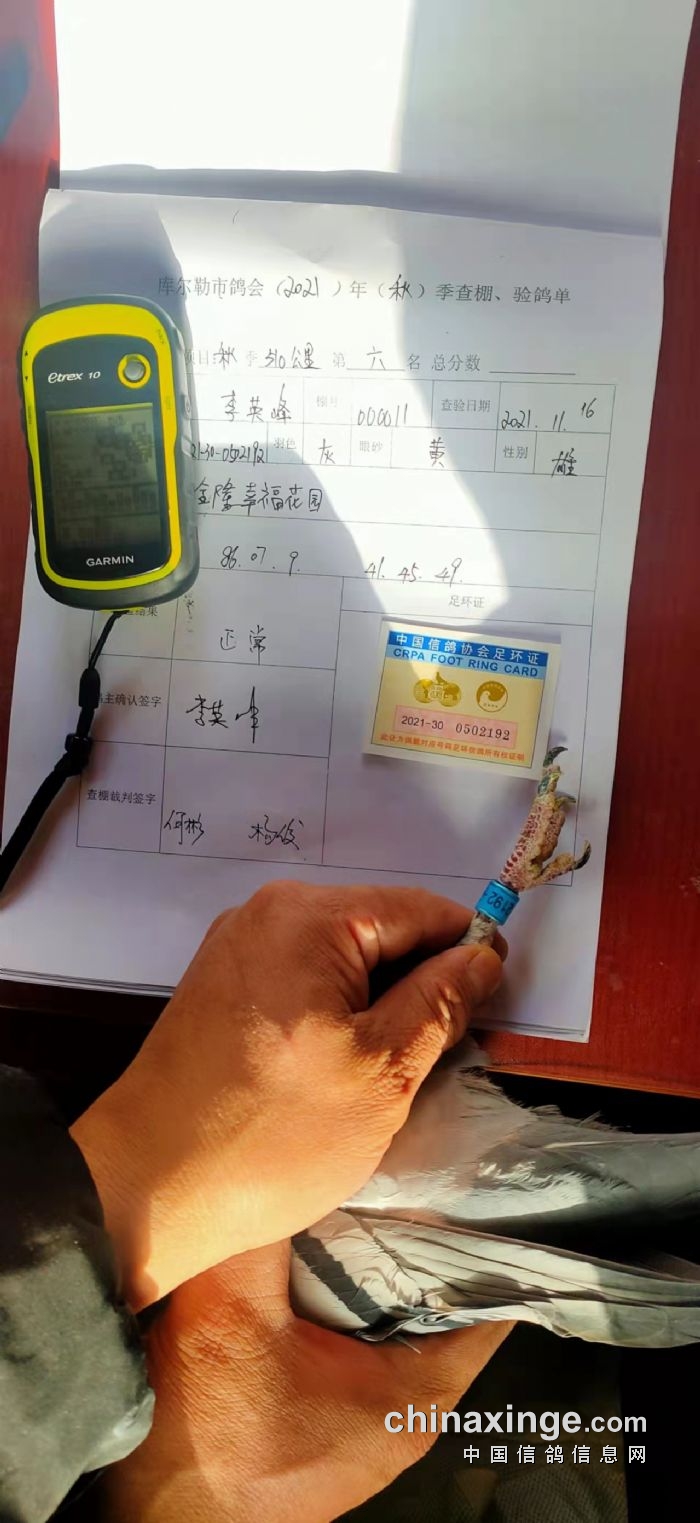 库尔勒市鸽会(2021)年(秋)季查棚、验鸽单
项目:秋 季 310公里 第 六 名 总分数
李英峰 棚号 000011 查验日期 2021.11.16
21-30-0502192 羽色 灰 眼砂 黄 性别 雄
金隆幸福花园
86.07.9. 41.45.49.
结果 正常 足环证
主确认签字 李英峰
查棚裁判签字 何彬 杨俊
eTrex 10
GARMIN
中国信鸽协会足环证
CRPA FOOT RING CARD
2021-30 0502192
此证为佩戴对应号码足环信鸽所有权证明
2192
chinaxinge.com
中国信鸽信息网